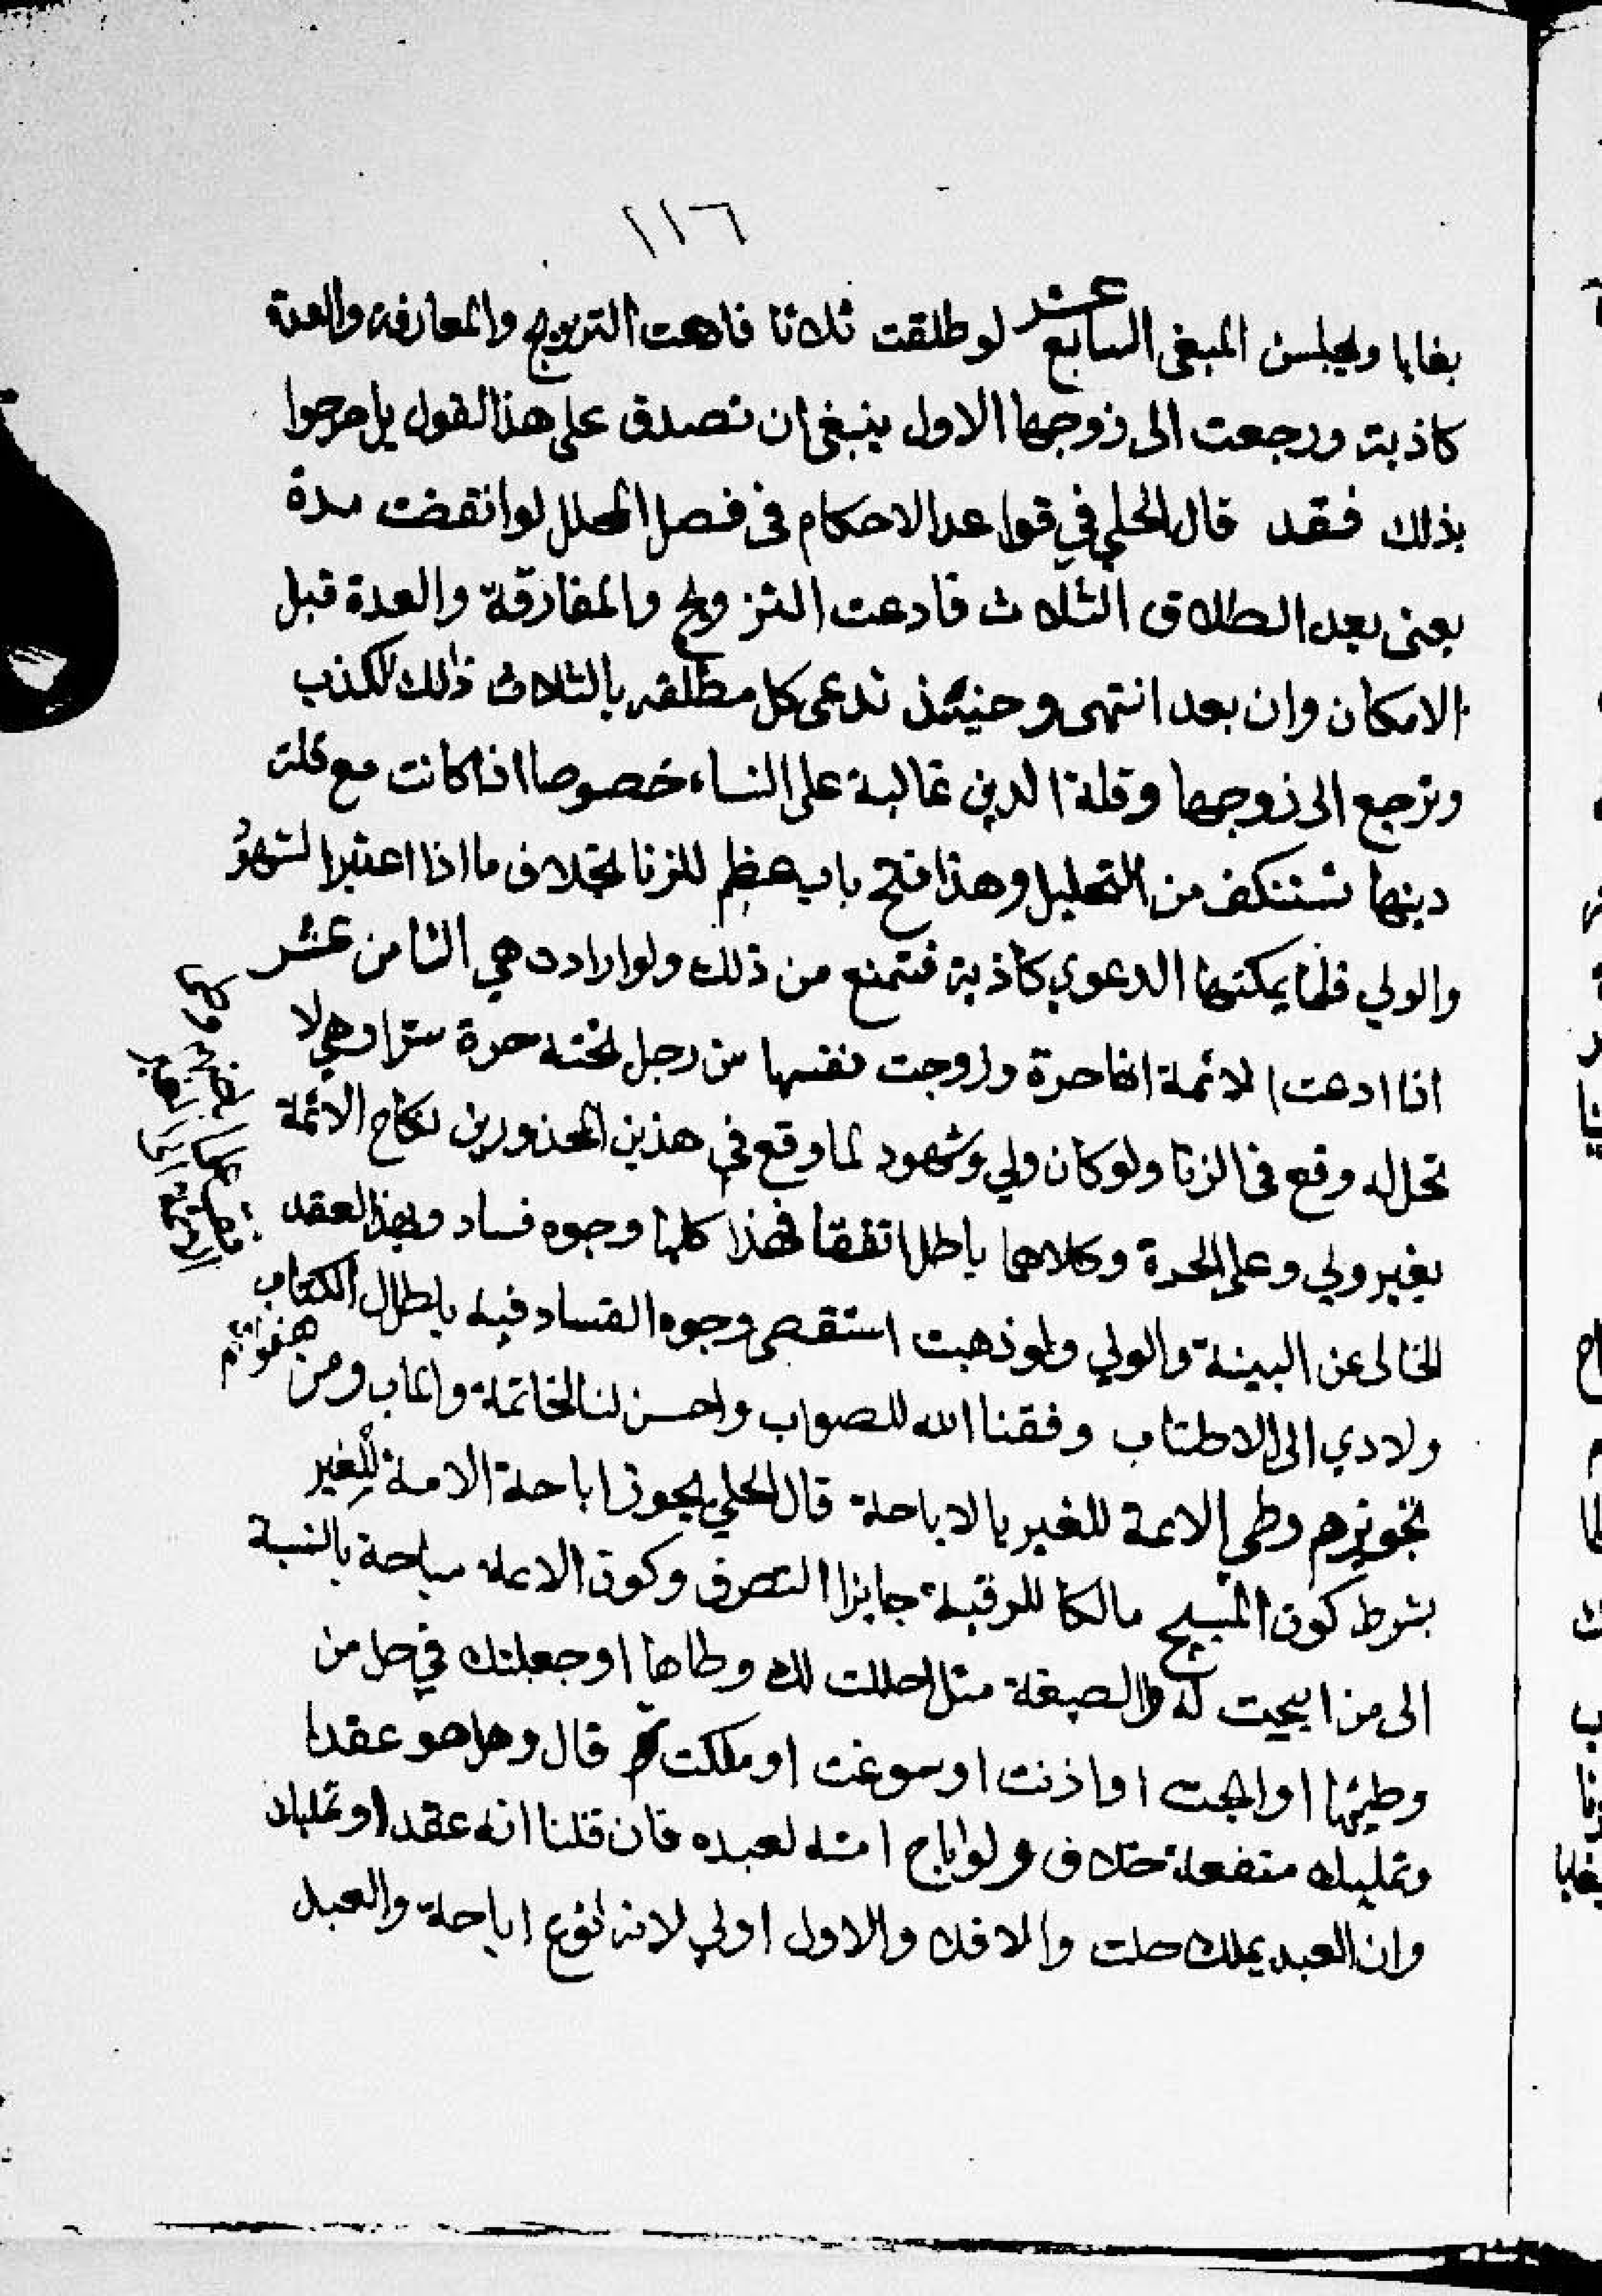 ١١٦
بغايا وليجلسن المبغى السابع عشر لو طلقت ثلاثا فادعت التزويج والمفارقة والعدة
كاذبة ورجعت الى زوجها الاول ينبغي ان تصدق على هذا القول بل صرحوا
بذلك فقد قال الحلي في قواعد الاحكام في فصل المحلل لو انقضت مدة
يعني بعد الطلاق الثلاث فادعت التزويج والمفارقة والعدة قبل
الامكان وان بعد انتهى وحينئذ تدعي كل مطلقة بالثلاث ذلك الكذب
وترجع الى زوجها وقلة الدين غالبة على النساء خصوصا اذا كانت مع قلة
دينها تستنكف من التحليل وهذا فتح باب عظيم للزنا بخلاف ما اذا اعتبر الشهود
والولي فلما يمكنها الدعوي كاذبة فتمنع من ذلك ولو ارادت هي الثامن عشر
اذا ادعت الائمة انها حرة وزوجت نفسها من رجل تحته حرة سترا وهي لا
تحل له وقع في الزنا ولو كان ولي وشهود لما وقع في هذين المحذورين نكاح الائمة
بغير ولي وعلى الحرة وكلاهما باطل اتفقا فهذا كلها وجوه فساد وبهذا العقد
الخالى عن البينة والولي ولو ذهبت استقصى وجوه الفساد فيه بلطال الكتاب
ولادي الى الاطناب وفقنا الله للصواب واحسن لنا الخاتمة والماب ومن هفواتهم
تجويزهم وطي الامة للغير بالاباحة قال الحلي يجوز اباحة الامة للغير
بشرط كون المبيح مالكا للرقبة جايزا التصرف وكون الامة مباحة بالنسبة
الى من ابيحت له والصيغة مثل احللت لك وطاها او جعلتك في حل من
وطيها او ابحت او اذنت او سوغت او ملكت قال وهل هو عقدا
وتمليك منفعة خلاف ولو اباح امته لعبده فان قلنا انه عقد او تمليك
وان العبد يملك حلت والا فلا والاول اولي لانه نوع اباحة والعبد